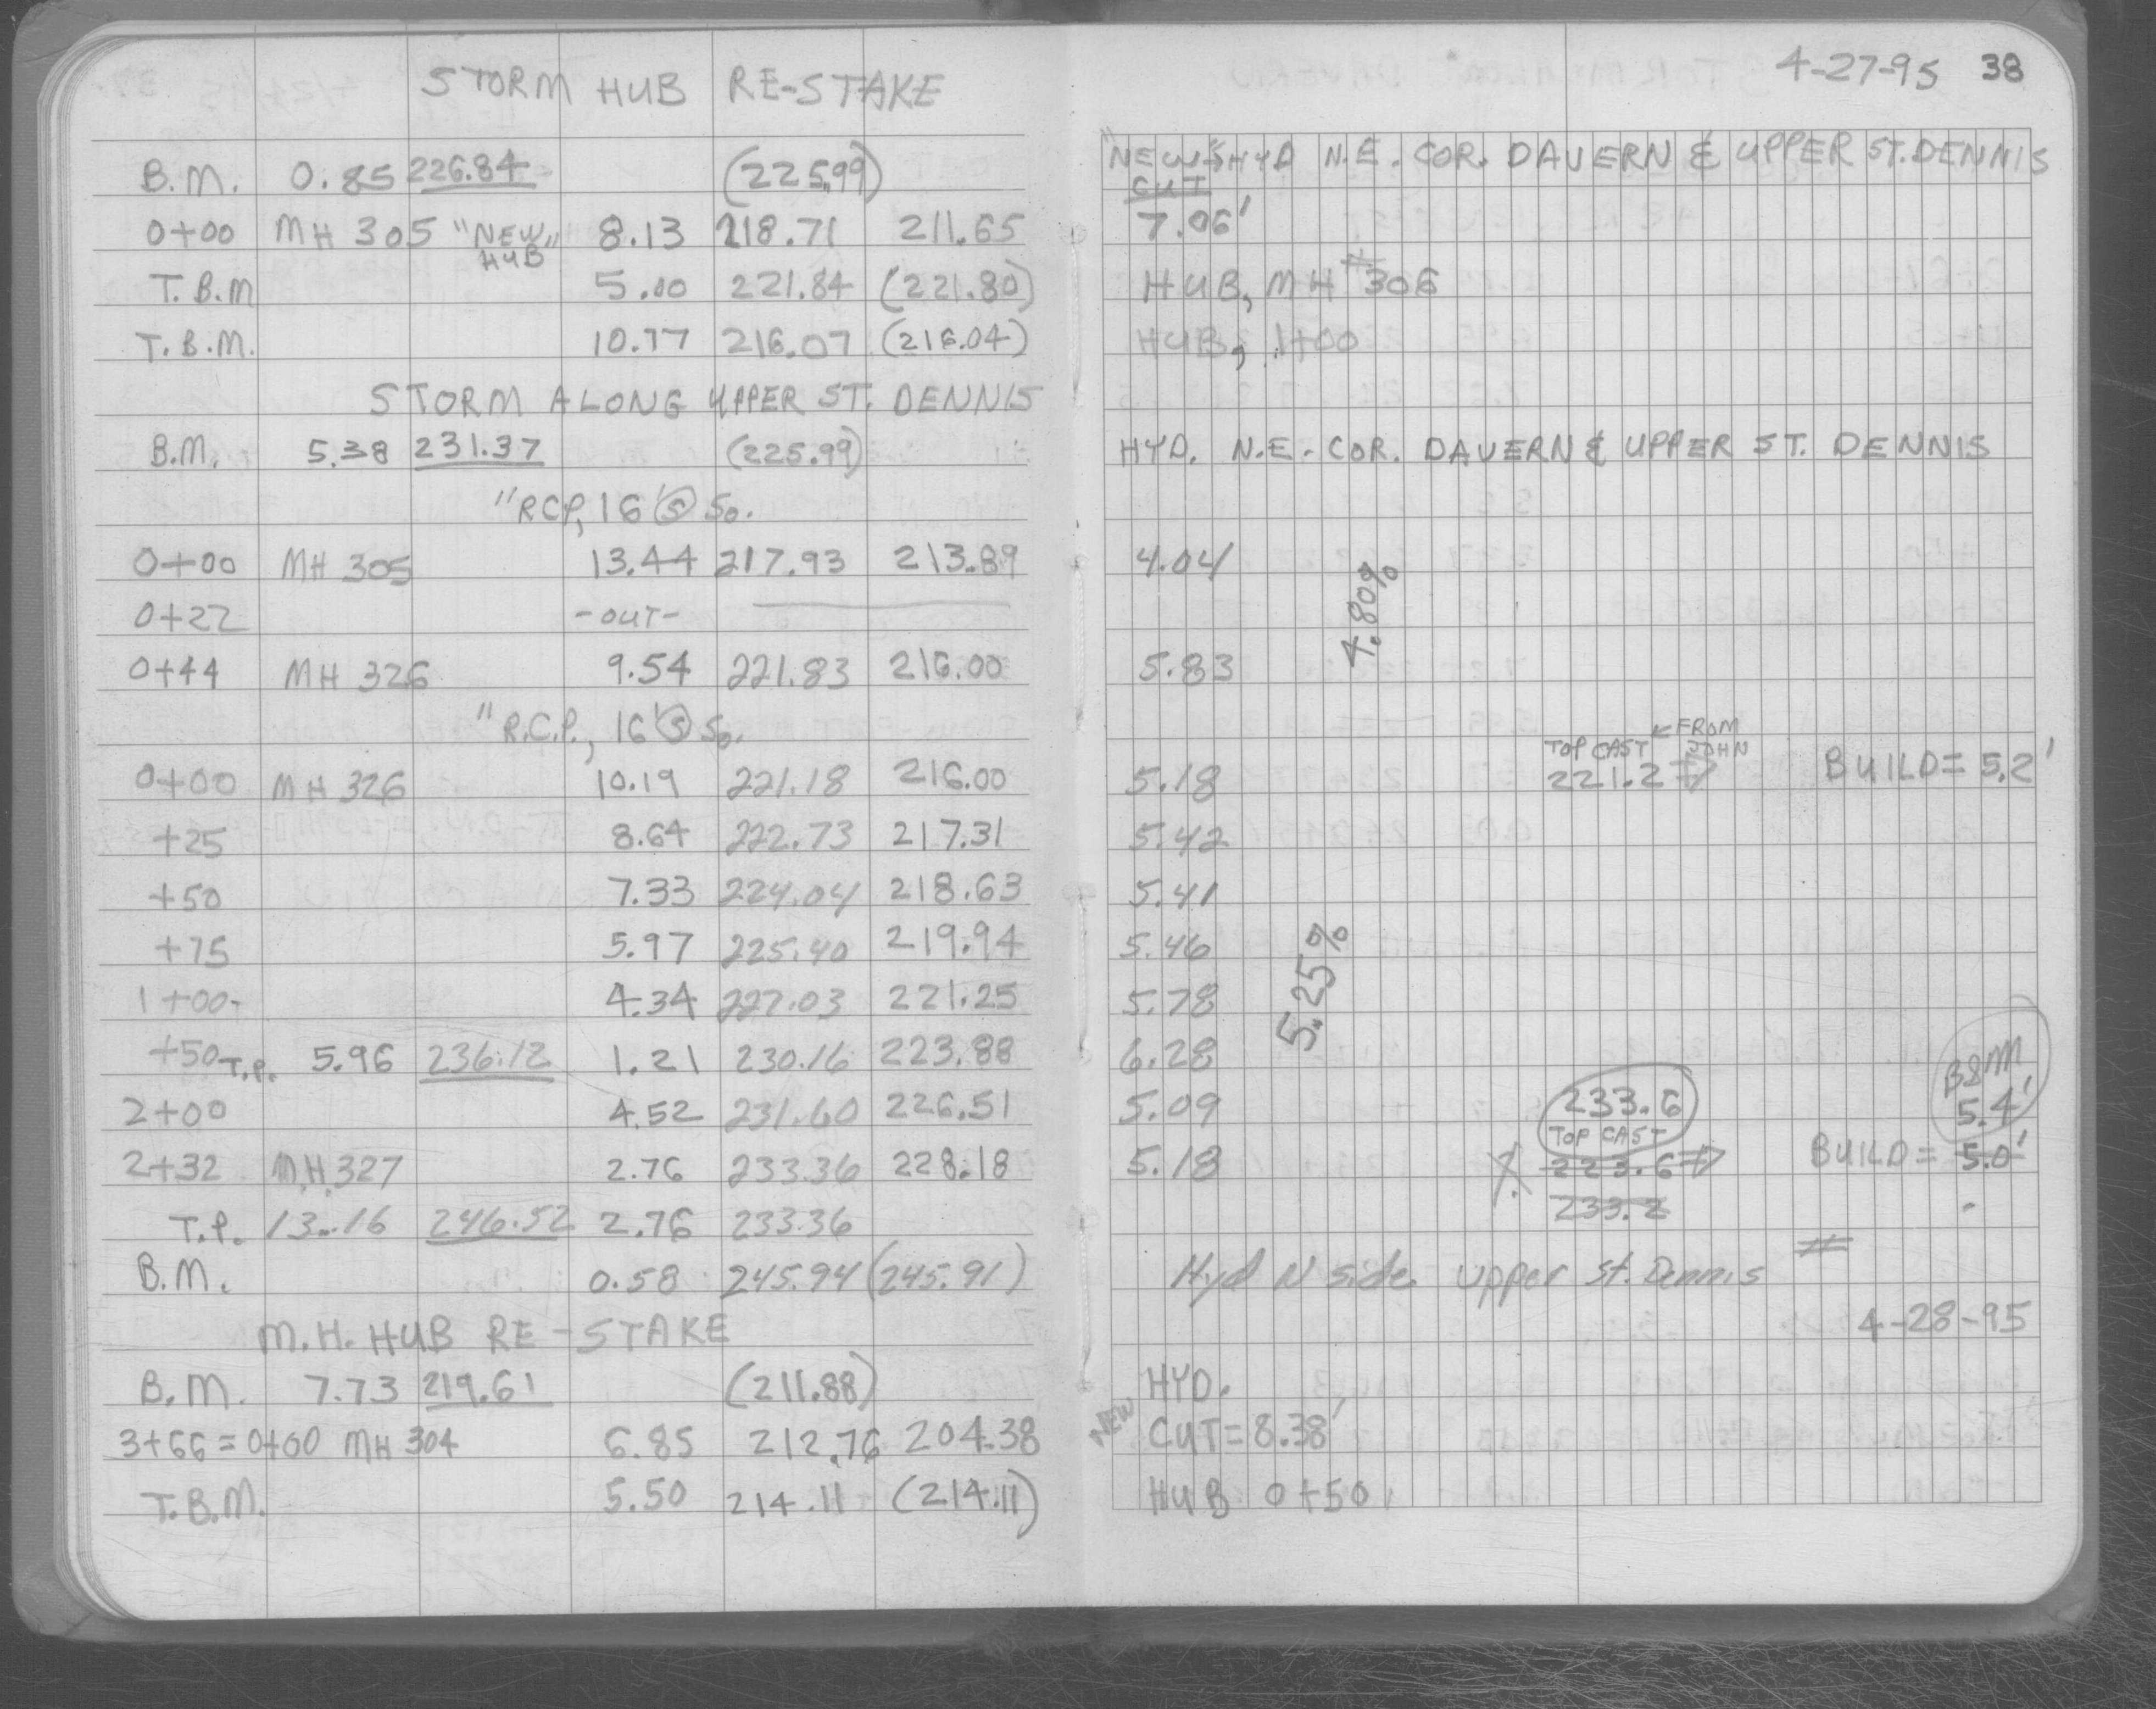 STORM HUB RE-STAKE
4-27-95 38
B.M. 0.85 226.84 (225.99) "NEW" HYD N.E. COR. DAVERN & UPPER ST. DENNIS
CUT
0+00 MH 305 "NEW" HUB 8.13 218.71 211.65 7.06'
T.B.M 5.00 221.84 (221.80) HUB, MH #306
T.B.M. 10.77 216.07 (216.04) HUB, 1+00
STORM ALONG UPPER ST. DENNIS
B.M. 5.38 231.37 (225.99) HYD. N.E. COR. DAVERN & UPPER ST. DENNIS
"RCP, 16' ⓢ So.
0+00 MH 305 13.44 217.93 213.89 4.04
4.80%
0+22 -OUT-
0+44 MH 326 9.54 221.83 216.00 5.83
"R.C.P., 16' ⓢ So.
TOP CAST ← FROM JOHN
0+00 MH 326 10.19 221.18 216.00 5.18 221.2 ⇒ BUILD = 5.2'
+25 8.64 222.73 217.31 5.42
+50 7.33 224.04 218.63 5.41
+75 5.97 225.40 219.94 5.46
5.25%
1+00 4.34 227.03 221.25 5.78
+50 T.P. 5.96 236.12 1.21 230.16 223.88 6.28
2+00 4.52 231.60 226.51 5.09 233.6 5.4'
TOP CAST
2+32 M.H. 327 2.76 233.36 228.18 5.18 223.6 ⇒ BUILD = 5.0'
233.2
T.P. 13.16 246.52 2.76 233.36
B.M. 0.58 245.94 (245.91) Hyd N side Upper St. Dennis
4-28-95
M.H. HUB RE-STAKE
B.M. 7.73 219.61 (211.88) HYD.
3+66 = 0+00 MH 304 6.85 212.76 204.38 NEW CUT = 8.38'
T.B.M. 5.50 214.11 (214.11) HUB 0+50